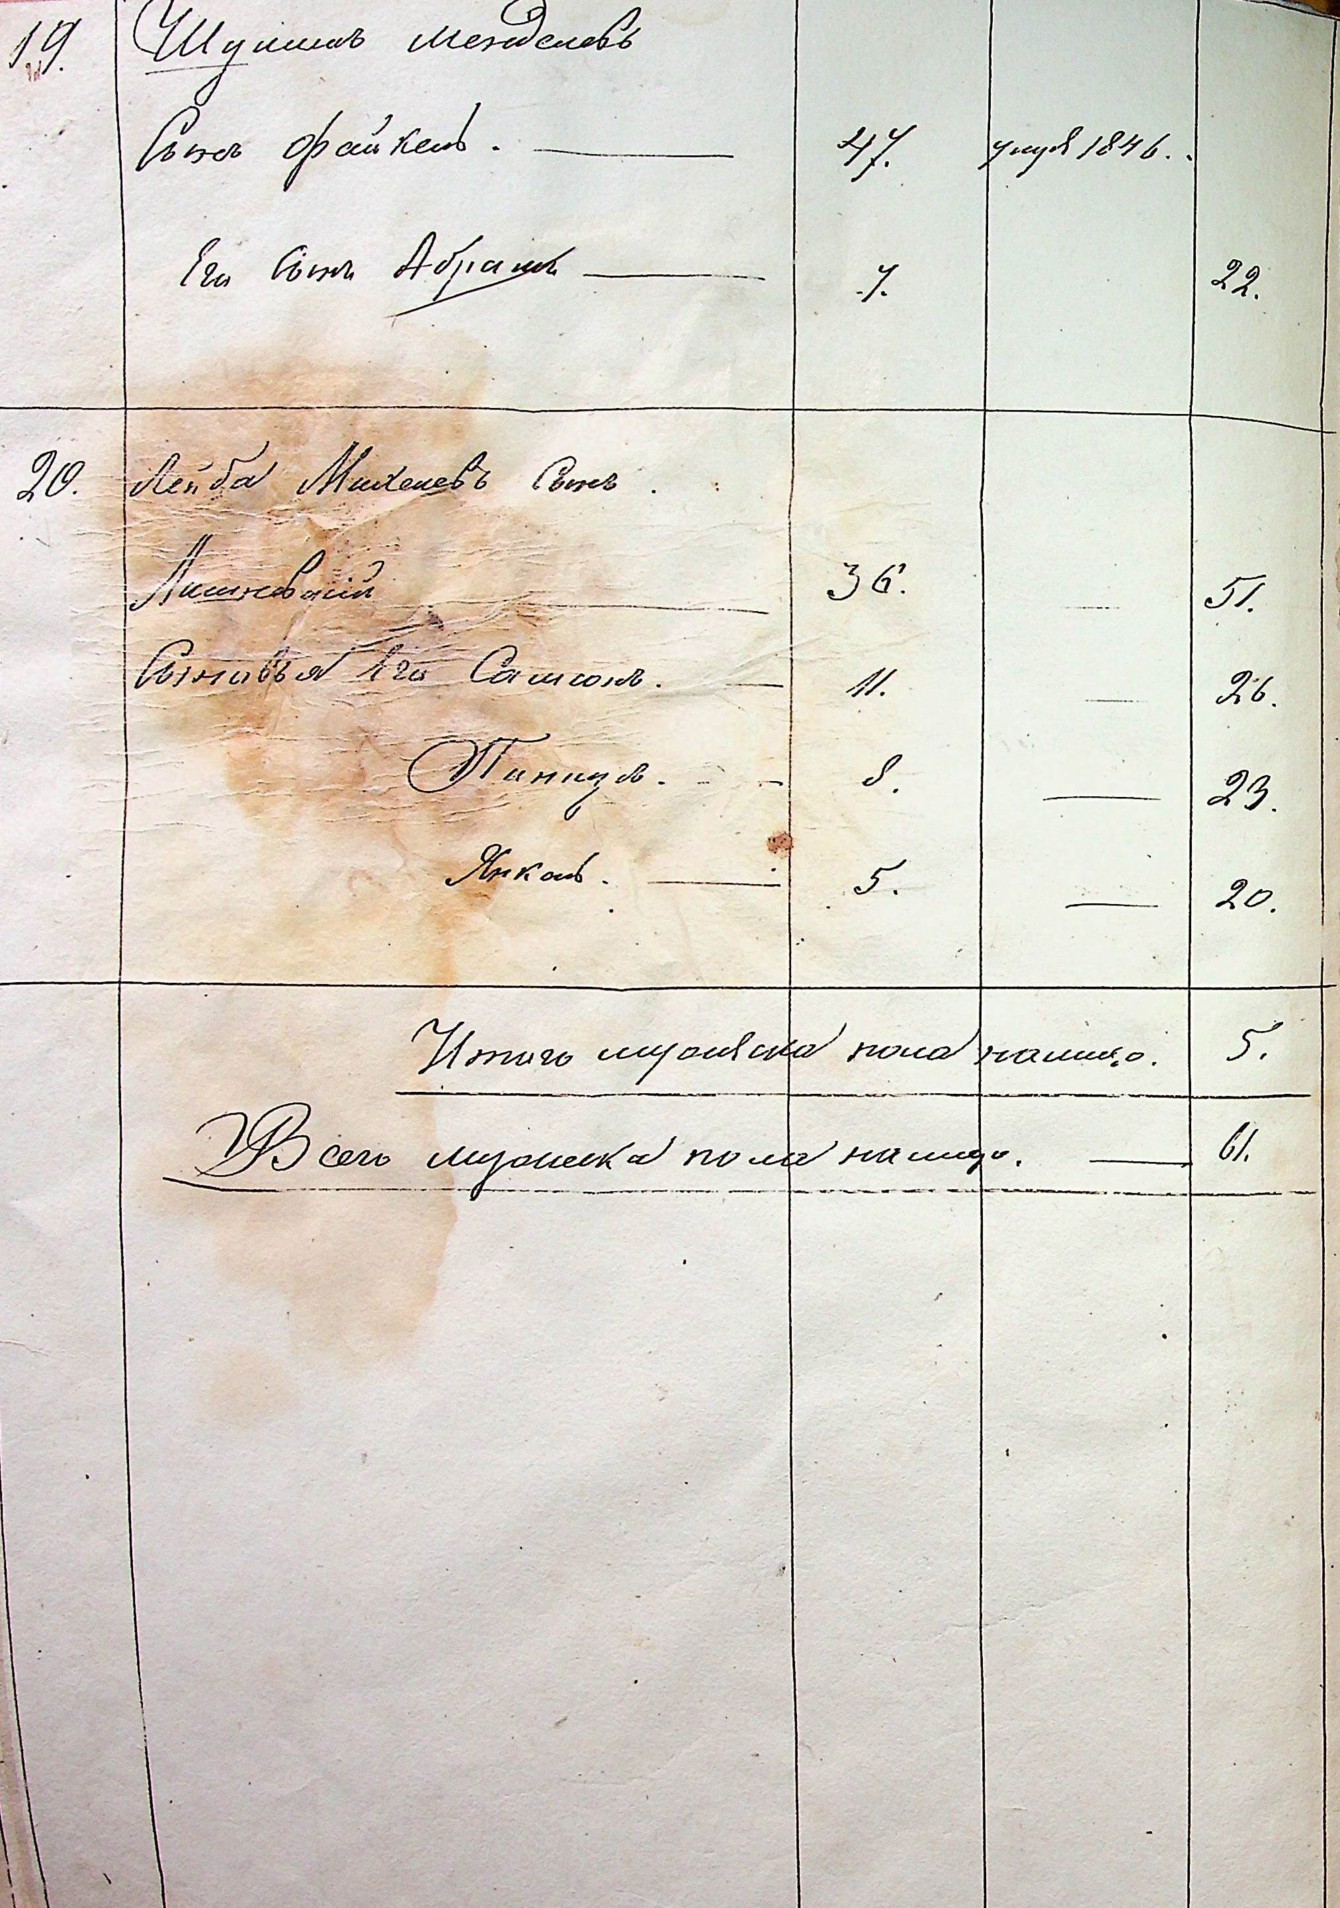 19. Шулимъ Менделевъ
Сынъ Файкель. 47. умеръ 1846.
Его Сынъ Абрамъ 7. 22.
20. Лейба Михелевъ Сынъ.
36. 51.
Сыновья Его Самсонъ. 11. 26.
Пинхусъ. 8. 23.
Янкель. 5. 20.
Итого мужеска пола налицо. 5.
Всего мужеска пола налицо. 61.